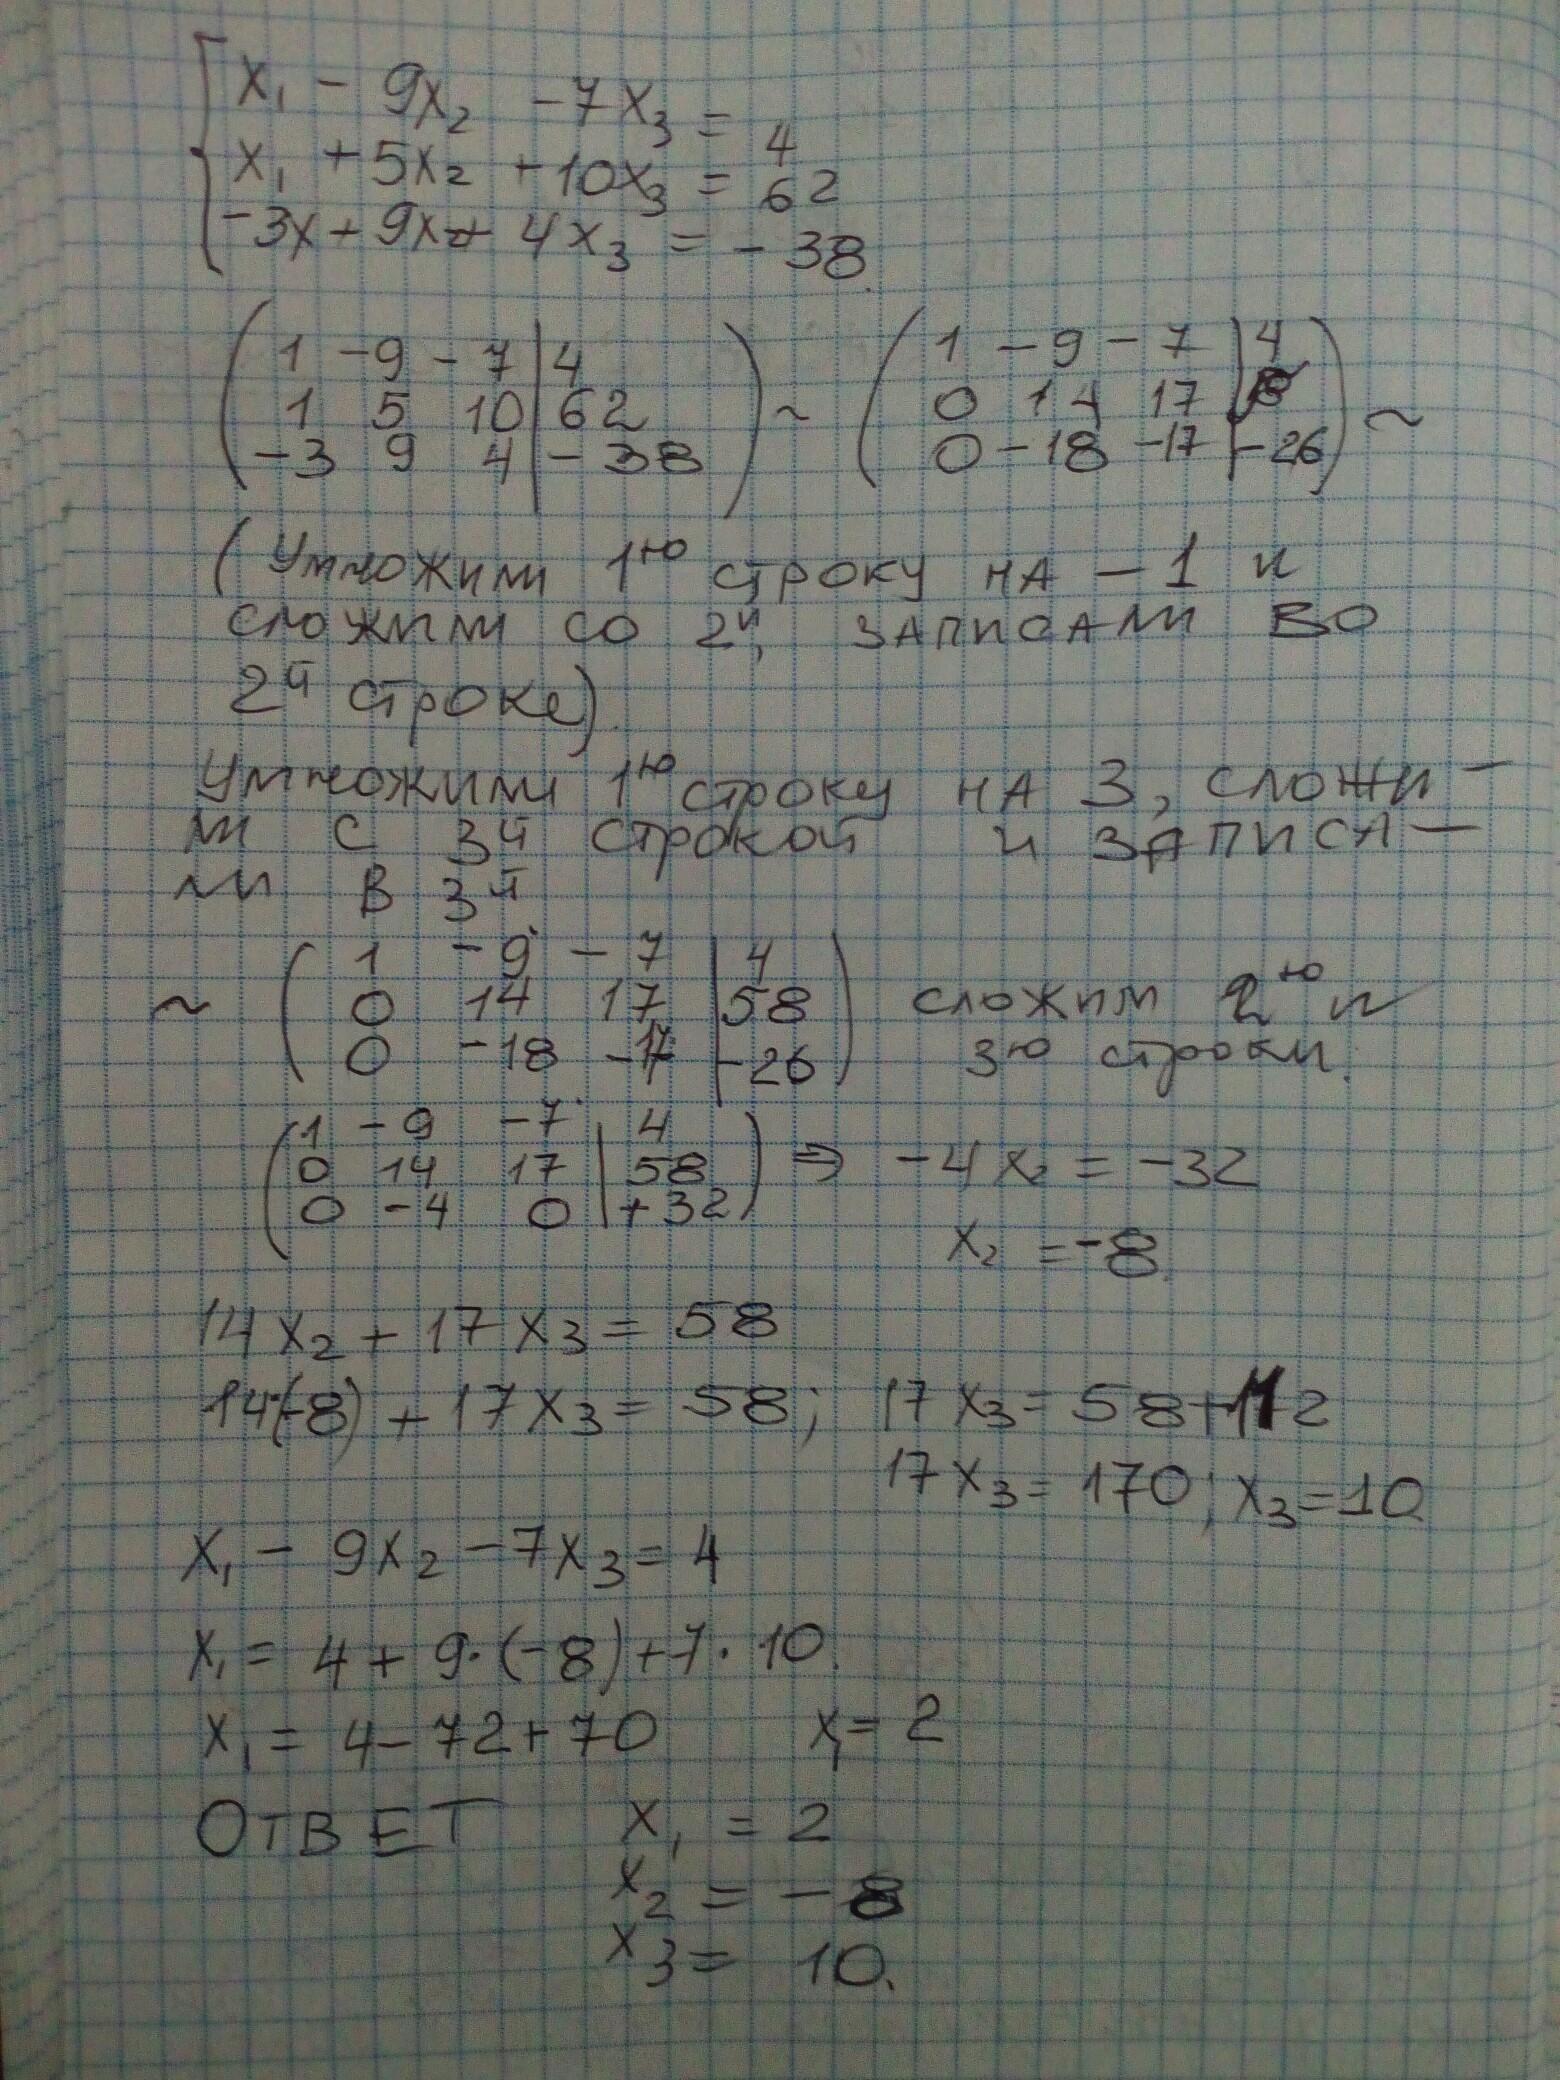 x₁ - 9x₂ - 7x₃ = 4
x₁ + 5x₂ + 10x₃ = 62
-3x + 9x₂ + 4x₃ = -38.
( 1 -9 -7 | 4 ) ~ ( 1 -9 -7 | 4 ) ~
( 1 5 10 | 62 ) ( 0 14 17 | )
( -3 9 4 | -38 ) ( 0 -18 -17 | -26 )
(Умножили 1ю строку на -1 и
сложили со 2й, записали во
2й строке).
Умножили 1ю строку на 3, сложи-
ли с 3й строкой и записа-
ли в 3й
~ ( 1 -9 -7 | 4 ) сложим 2ю и
( 0 14 17 | 58 ) 3ю строки.
( 0 -18 -17 | -26 )
( 1 -9 -7 | 4 )
( 0 14 17 | 58 ) ⇒ -4x₂ = -32
( 0 -4 0 | +32 )
x₂ = -8.
14x₂ + 17x₃ = 58
14·(-8) + 17x₃ = 58; 17x₃ = 58+112
17x₃ = 170; x₃ = 10
x₁ - 9x₂ - 7x₃ = 4
x₁ = 4 + 9·(-8) + 7·10.
x₁ = 4 - 72 + 70 x₁ = 2
Ответ x₁ = 2
x₂ = -8
x₃ = 10.